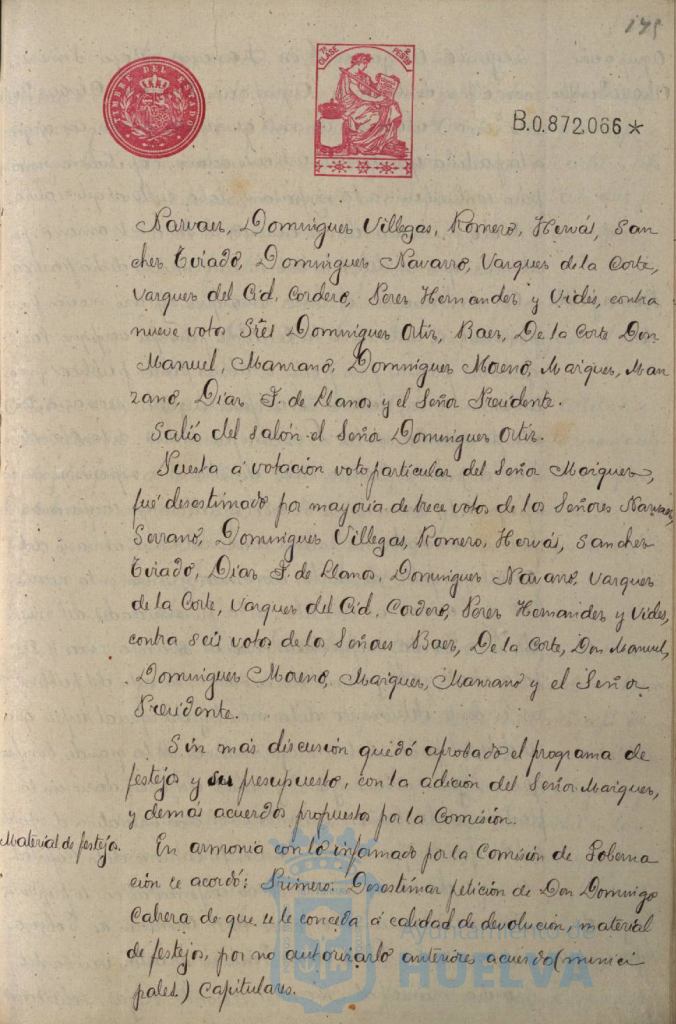 175
TIMBRE DEL ESTADO
7ª CLASE 2 PESETAS
B.0.872,066 *
Narvaez, Dominguez Villegas, Romero, Hervás, San
chez Tirado, Dominguez Navarro, Vazquez de la Corte,
Vazquez del Cid, Cordero, Perez Hernandez y Vides, contra
nueve votos Sres Dominguez Ortiz, Baez, De la Corte Don
Manuel, Manzano, Dominguez Moreno, Marquez, Man
zano, Diaz F. de Llanos y el Señor Presidente.
Salió del salón el Señor Dominguez Ortiz.
Puesta á votación voto particular del Señor Marquez,
fué desestimado por mayoria de trece votos de los Señores Narvaez,
Serrano, Dominguez Villegas, Romero, Hervás, Sanchez
Tirado, Diaz F. de Llanos, Dominguez Navarro, Vazquez
de la Corte, Vazquez del Cid, Cordero, Perez Hernandez y Vides,
contra seis votos de los Señores Baez, De la Corte, Don Manuel,
Dominguez Moreno, Marquez, Manzano y el Señor
Presidente.
Sin más discusión quedó aprobado el programa de
festejos y su presupuesto, con la adición del Señor Marquez,
y demás acuerdos propuestos por la Comisión.
Material de festejos.
En armonia con lo informado por la Comisión de Goberna
ción se acordó: Primero: Desestimar petición de Don Domingo
Cabrera de que se le conceda á calidad de devolución, material
de festejos, por no autorizarlo anteriores acuerdo (munici
pales.) Capitulares.
Ayuntamiento de
HUELVA